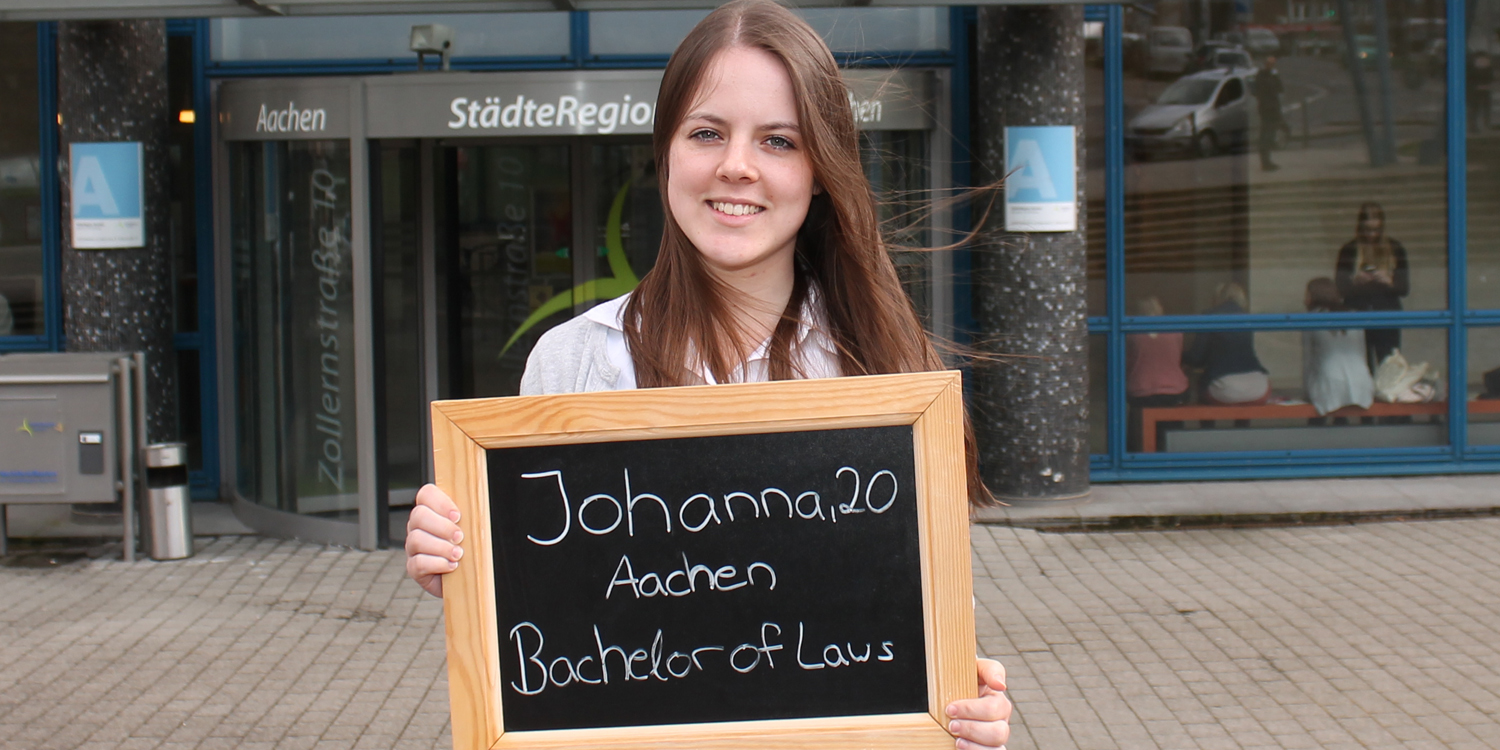 Aachen
StädteRegio
hen
A
A
Zollernstraße 10
Johanna, 20
Aachen
Bachelor of Laws